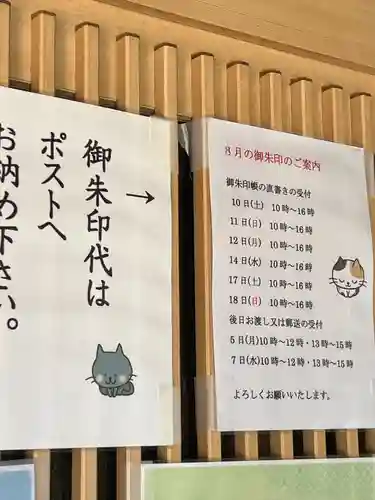 御朱印代は→
ポストへ
お納め下さい。
8月の御朱印のご案内
御朱印帳の直書きの受付
10日(土) 10時〜16時
11日(日) 10時〜16時
12日(月) 10時〜16時
14日(水) 10時〜16時
17日(土) 10時〜16時
18日(日) 10時〜16時
後日お渡し又は郵送の受付
5日(月)10時〜12時・13時〜15時
7日(水)10時〜12時・13時〜15時
よろしくお願いいたします。